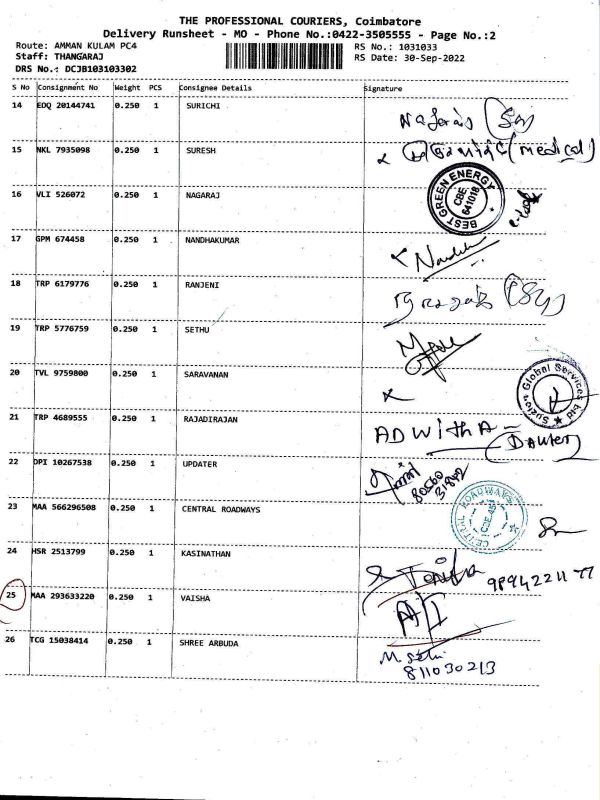 THE PROFESSIONAL COURIERS, Coimbatore
Delivery Runsheet - MO - Phone No.:0422-3505555 - Page No.:2
Route: AMMAN KULAM PC4 RS No.: 1031033
Staff: THANGARAJ RS Date: 30-Sep-2022
DRS No.: DCJB103103302
S No Consignment No Weight PCS Consignee Details Signature
14 EDQ 20144741 0.250 1 SURICHI
15 NKL 7935098 0.250 1 SURESH (medical)
16 VLI 526072 0.250 1 NAGARAJ
BEST GREEN ENERGY
CBE
641018
17 GPM 674458 0.250 1 NANDHAKUMAR
18 TRP 6179776 0.250 1 RANJENI
19 TRP 5776759 0.250 1 SETHU
20 TVL 9759800 0.250 1 SARAVANAN
Suzlon Global Services Ltd
21 TRP 4689555 0.250 1 RAJADIRAJAN ADWITHA
22 DPI 10267538 0.250 1 UPDATER
23 MAA 566296508 0.250 1 CENTRAL ROADWAYS
CENTRAL ROADWAYS
24 HSR 2513799 0.250 1 KASINATHAN
25 MAA 293633220 0.250 1 VAISHA
26 TCG 15038414 0.250 1 SHREE ARBUDA